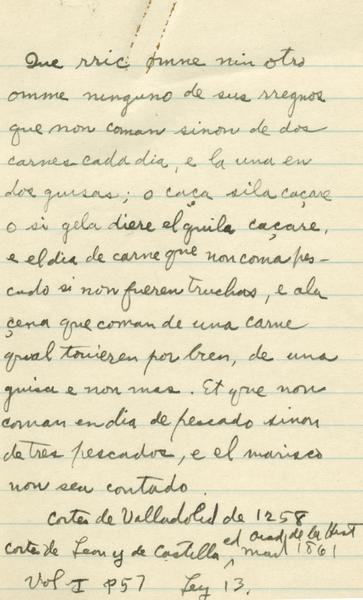 Que rric omne nin otro
omme ninguno de sus rregnos
que non coman sinon de dos
carnes cada dia, e la una en
dos guisas; o caça si la caçare
o si gela diere el quila caçare,
e el dia de carne que non coma pes-
cado si non fueren truchas, e ala
çena que coman de una carne
qual touieren por bien, de una
guisa e non mas. Et que non
coman en dia de pescado sinon
de tres pescados, e el marisco
non sea contado.
Cortes de Valladolid de 1258
Cortes de Leon y de Castilla ed Acad. de la Hist
Mad 1861
Vol I p57 Ley 13.